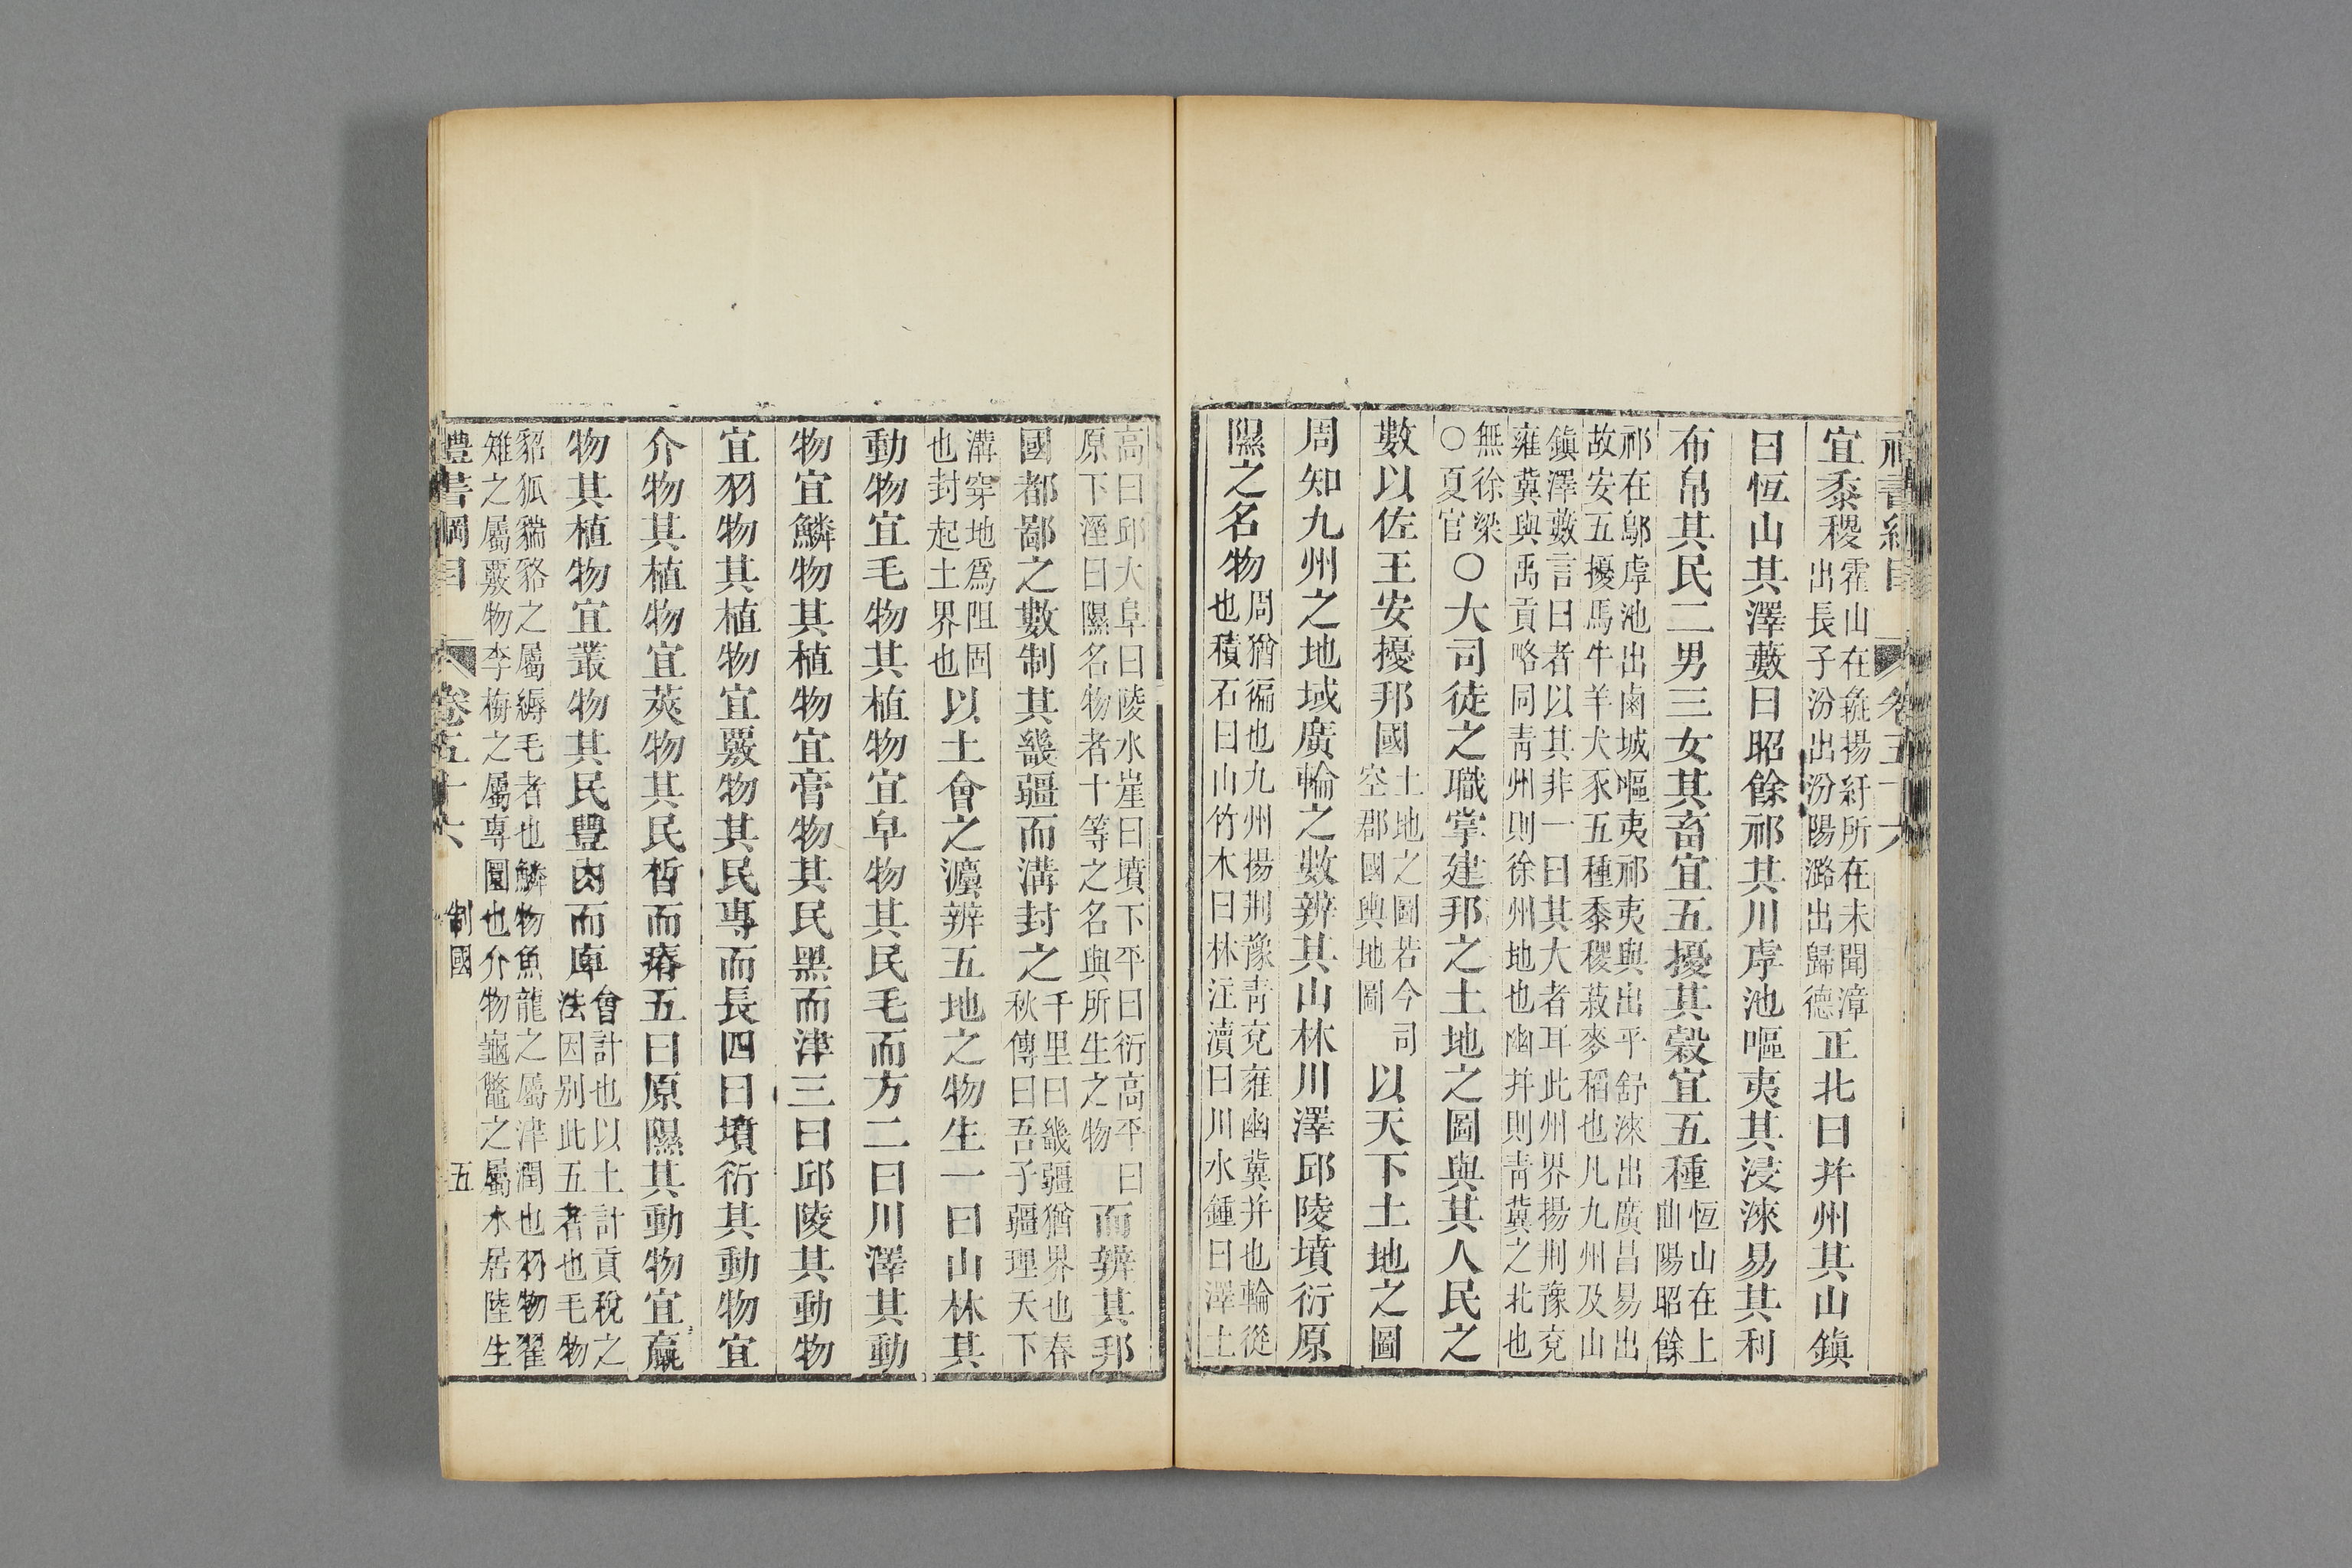 宜黍稷霍山在彘揚紆所在未聞漳出長子汾出汾陽潞出歸德正北曰并州其山鎭
曰恆山其澤藪曰昭餘祁其川虖池嘔夷其浸淶易其利
布帛其民二男三女其畜宜五擾其穀宜五種恆山在上曲陽昭餘
祁在鄔虖池出鹵城嘔夷祁夷與出平舒淶出廣昌易出故安五擾馬牛羊犬豕五種黍稷菽麥稻也凡九州及山
鎭澤藪言曰者以其非一曰其大者耳此州界揚荆豫兗雍冀與禹貢略同靑州則徐州地也幽并則靑冀之北也
無徐梁○夏官○大司徒之職掌建邦之土地之圖與其人民之
數以佐王安擾邦國土地之圖若今司空郡國輿地圖以天下土地之圖
周知九州之地域廣輪之數辨其山林川澤邱陵墳衍原
隰之名物周猶徧也九州揚荆豫靑兗雍幽冀并也輪從也積石曰山竹木曰林注瀆曰川水鍾曰澤土
高曰邱大阜曰陵水崖曰墳下平曰衍高平曰原下溼曰隰名物者十等之名與所生之物而辨其邦
國都鄙之數制其畿疆而溝封之千里曰畿疆猶界也春秋傳曰吾子疆理天下
溝穿地爲阻固也封起土界也以土會之灋辨五地之物生一曰山林其
動物宜毛物其植物宜皁物其民毛而方二曰川澤其動
物宜鱗物其植物宜膏物其民黑而津三曰邱陵其動物
宜羽物其植物宜覈物其民專而長四曰墳衍其動物宜
介物其植物宜莢物其民晳而瘠五曰原隰其動物宜臝
物其植物宜叢物其民豐肉而庳會計也以土計貢稅之法因别此五者也毛物
貂狐貒貉之屬縟毛者也鱗物魚龍之屬津潤也羽物翟雉之屬覈物李梅之屬專圜也介物龜鼈之屬水居陸生
禮書綱目 卷五十六 制國 五